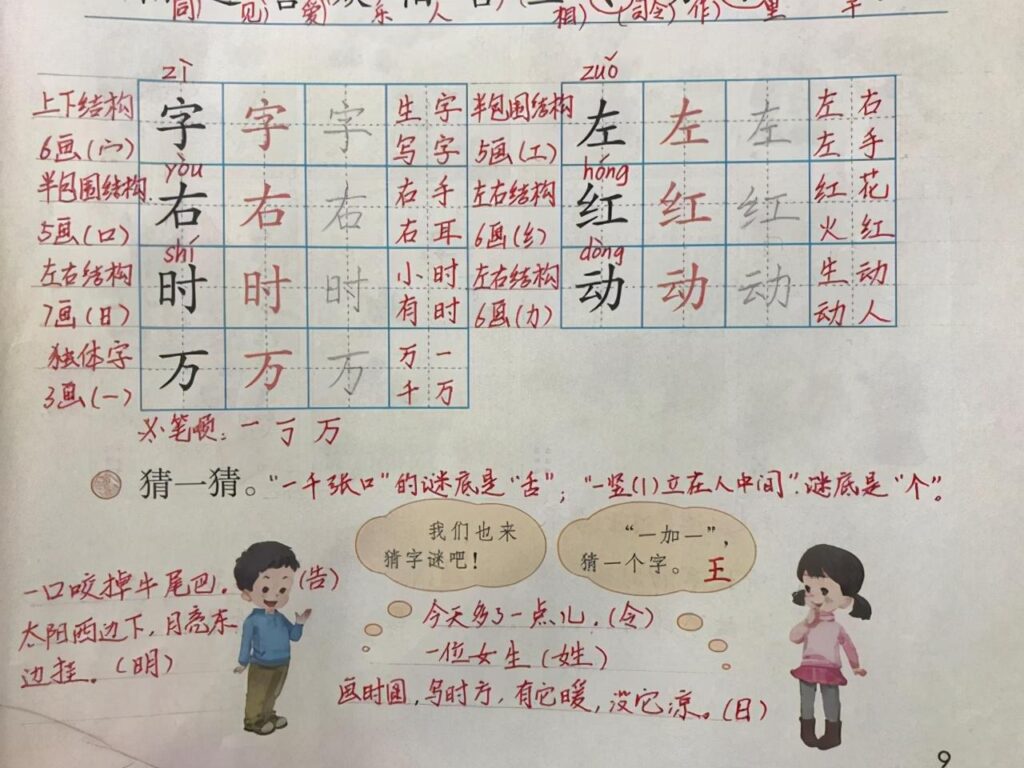 (同) (见) (爱) (乐) (人) (相) (司令) (作) (里) (羊)
zì
上下结构 字 字 字 生字
6画(宀) 写字
yòu
半包围结构 右 右 右 右手
5画(口) 右耳
shí
左右结构 时 时 时 小时
7画(日) 有时
独体字 万 万 万 万一
3画(一) 千万
zuǒ
半包围结构 左 左 左 左右
5画(工) 左手
hóng
左右结构 红 红 红 红花
6画(纟) 火红
dòng
左右结构 动 动 动 生动
6画(力) 动人
笔顺：一 丁 万
猜一猜。“一千张口”的谜底是“舌”；“一竖(丨)立在人中间”谜底是“个”。
我们也来
猜字谜吧！
“一加一”，
猜一个字。王
一口咬掉牛尾巴。(告)
太阳西边下，月亮东
边挂。(明)
今天多了一点儿。(令)
一位女生(姓)
画时圆，写时方，有它暖，没它凉。(日)
9